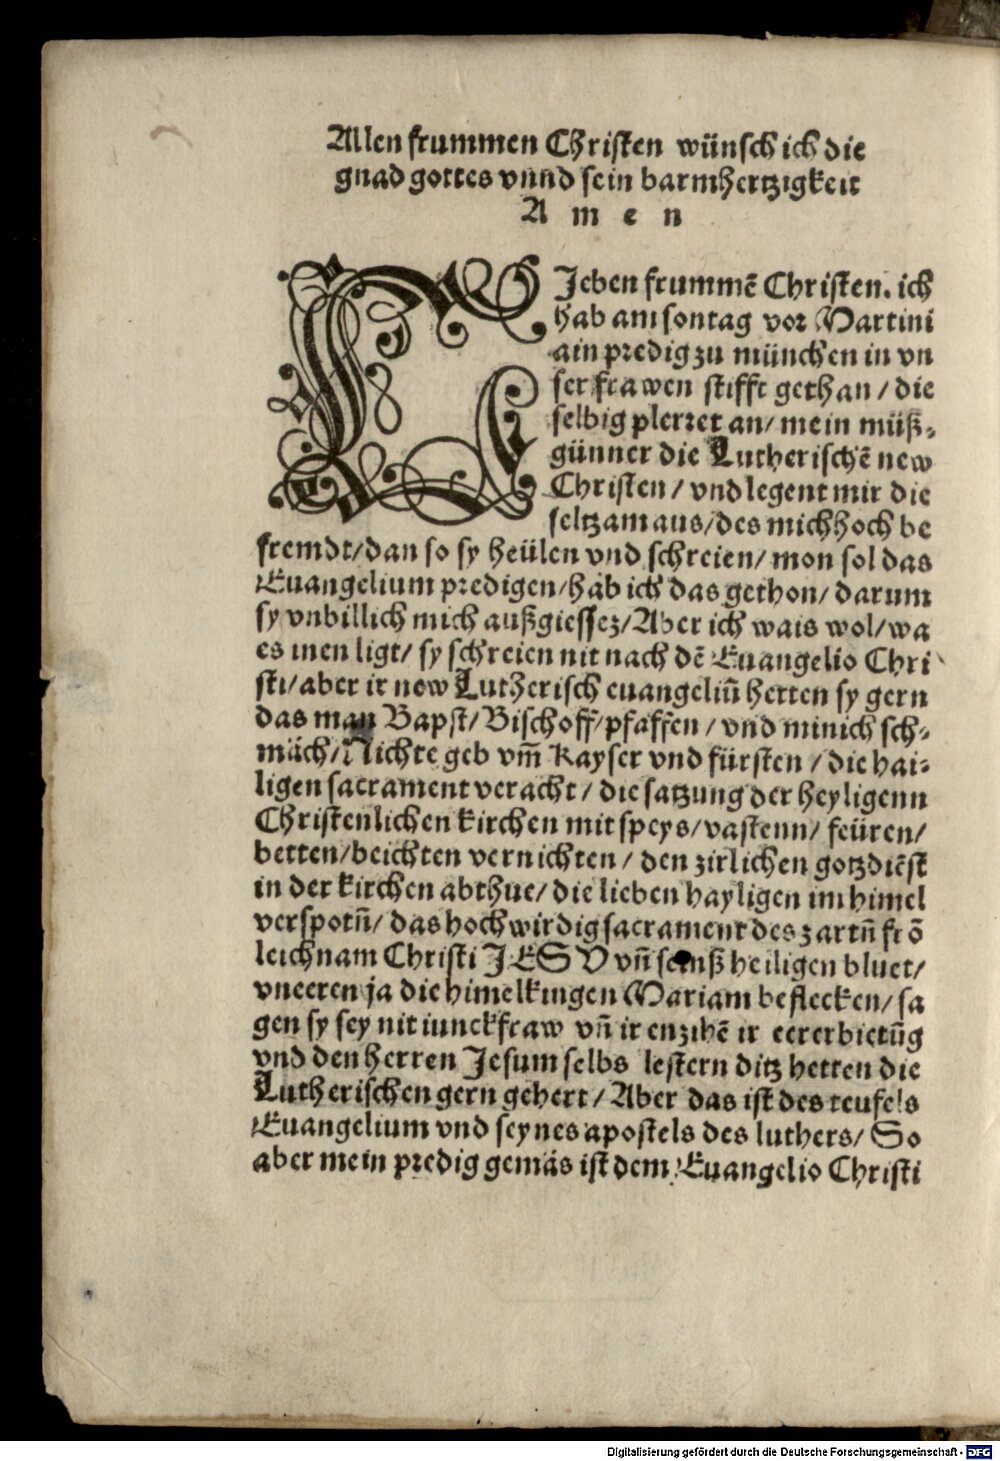 Allen frummen Christen wünsch ich die
gnad gottes vnnd sein barmhertzigkeit
A m e n
LJeben frummē Christen. ich
hab am sontag vor Martini
ain predig zu münchen in vn
ser frawen stifft gethan / die
selbig plerret an / mein müß⸗
günner die Lutherischē new
Christen / vnd legent mir die
seltzam aus / des mich hoch be
fremdt / dan so sy heülen vnd schreien / mon sol das
Euangelium predigen / hab ich das gethon / darum
sy vnbillich mich außgiessez / Aber ich wais wol / wa
es inen ligt / sy schreien nit nach dē Euangelio Chri
sti / aber ir new Lutherisch euangeliū hetten sy gern
das man Bapst / Bischoff / pfaffen / vnd minich sch⸗
mäch / Nichte geb vm̄ Kayser vnd fürsten / die hai⸗
ligen sacrament veracht / die satzung der heyligenn
Christenlichen kirchen mit speys / vastenn / feüren /
betten / beichten vernichten / den zirlichen gotzdiēst
in der kirchen abthue / die lieben hayligen im himel
verspotn̄ / das hochwirdig sacrament des zartn̄ frō
leichnam Christi JESV vn̄ seinß heiligen bluet /
vneeren ja die himelkingen Mariam beflecken / sa
gen sy sey nit iunckfraw vn̄ ir enzihē ir eererbietūg
vnd den herren Jesum selbs lestern ditz hetten die
Lutherischen gern gehert / Aber das ist des teufels
Euangelium vnd seynes apostels des luthers / So
aber mein predig gemäs ist dem Euangelio Christi
Digitalisierung gefördert durch die Deutsche Forschungsgemeinschaft - DFG